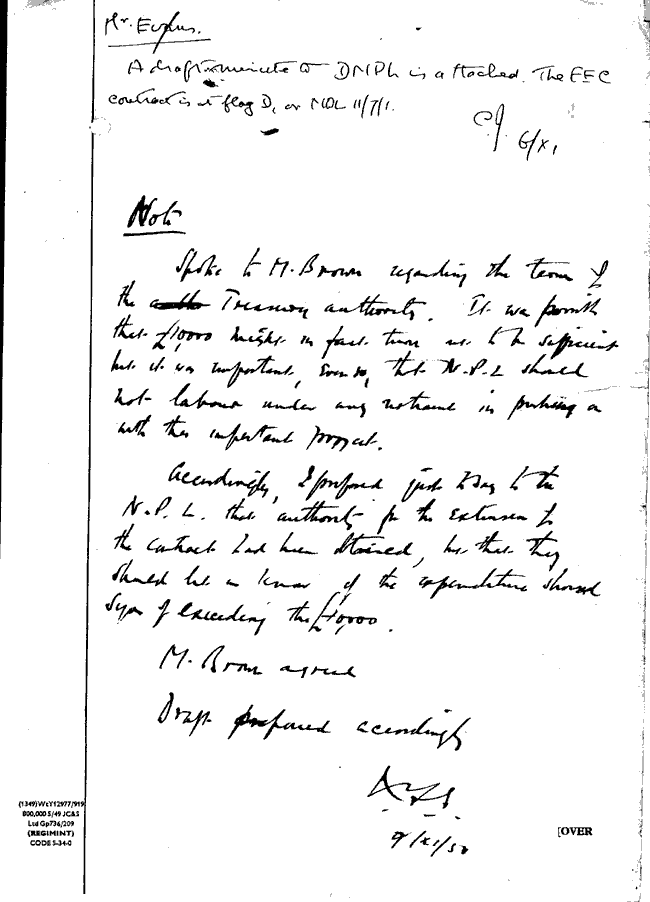 Mr. Evans.
A draft minute to DNPL is attached. The EEC
contract is at flag D, on NDL 11/7/1.
C.J. 6/XI
Note
Spoke to Mr. Brown regarding the terms of
the Treasury authority. It was
that £10,000 might in fact turn out to be sufficient
but it was important, even so, that N.P.L should
not labour under any restraint in pushing on
with this important project.
Accordingly, I proposed just to say to the
N.P.L. that authority for the extension of
the contract had been obtained, but that they
should let us know if the expenditure showed
signs of exceeding the £10,000.
Mr. Brown agreed
Draft prepared accordingly
9/XI/50
(1349) Wt.Y12977/919
800,000 5/49 JC&S
Ltd Gp736/209
(REGIMINT)
CODE 5-34-0
[OVER